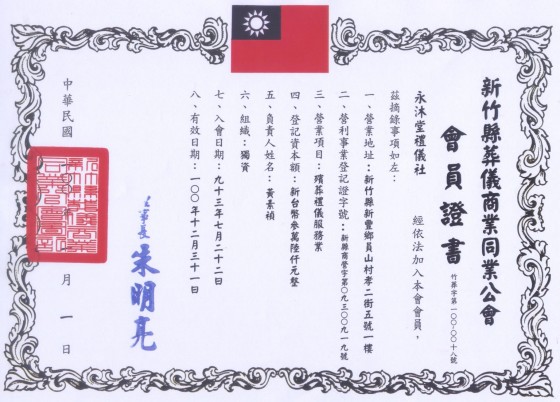 新竹縣葬儀商業同業公會
會員證書
竹葬字第一00-00十八號
永沐堂禮儀社
經依法加入本會會員，
茲摘錄事項如左：
一、營業地址：新竹縣新豐鄉員山村孝二街五號一樓
二、營利事業登記證字號：新縣商營字第0九三00九一九號
三、營業項目：殯葬禮儀服務業
四、登記資本額：新台幣參萬陸仟元整
五、負責人姓名：黃素禎
六、組織：獨資
七、入會日期：九十三年七月二十二日
八、有效日期：一00年十二月三十一日
理事長 朱明亮
中華民國
月一日